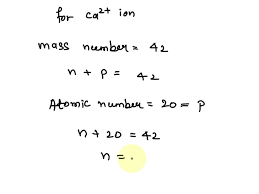 for Ca²⁺ ion
mass number = 42
n + p = 42
Atomic number = 20 = p
n + 20 = 42
n = .